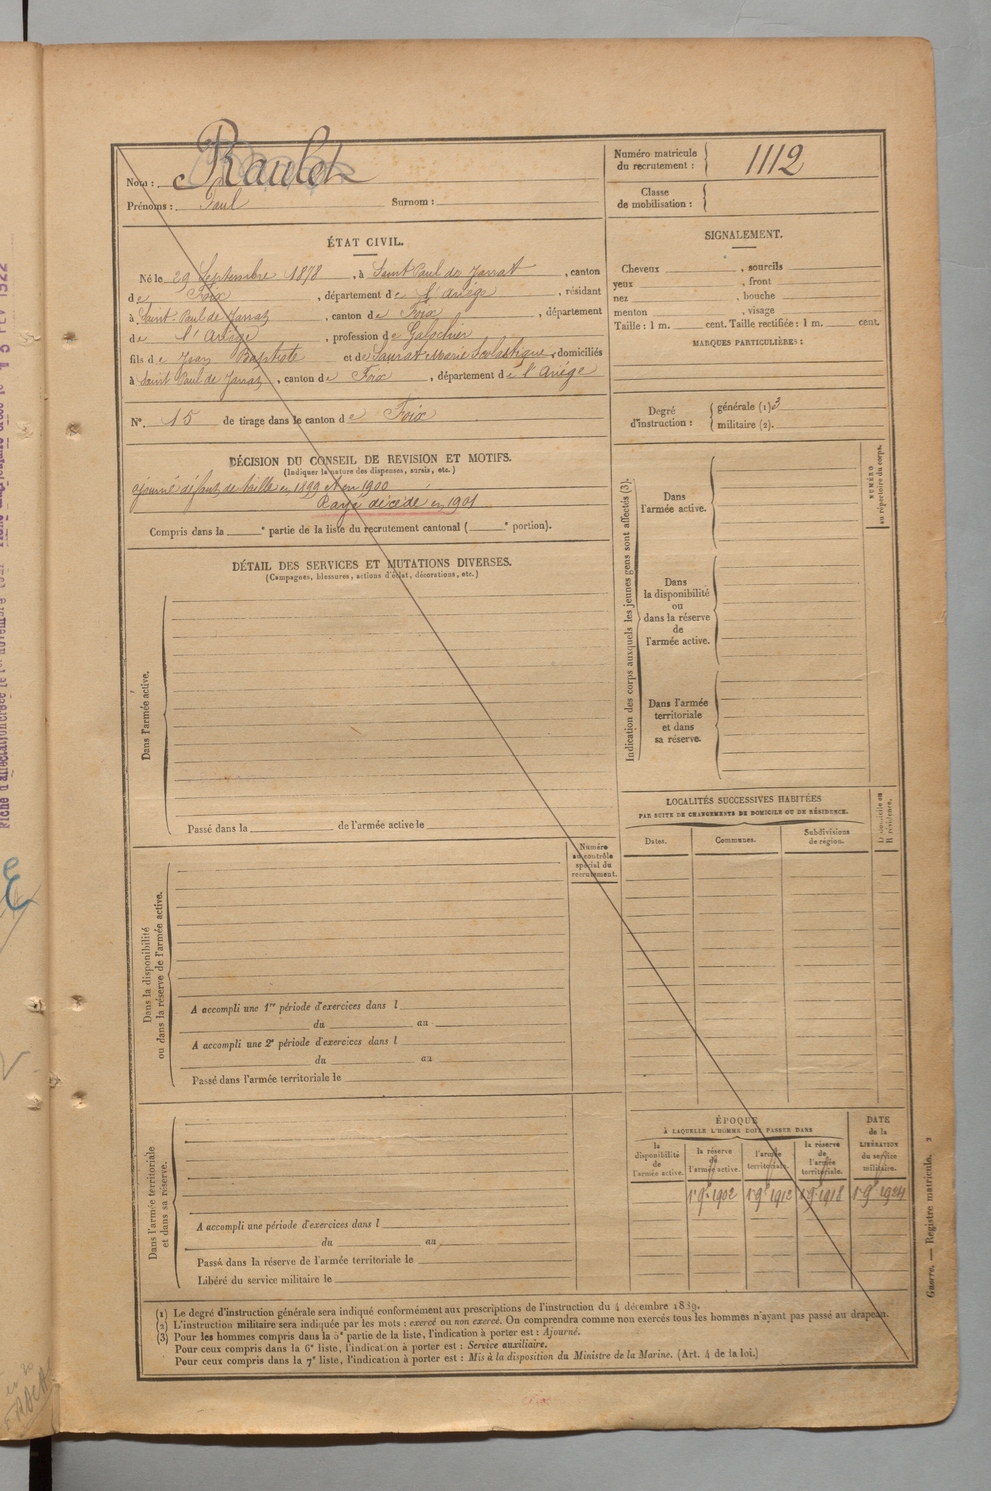 Nom : Raulet
Prénoms : Paul Surnom :
Numéro matricule du recrutement : 1112
Classe de mobilisation :
ÉTAT CIVIL.
Né le 29 Septembre 1878, à Saint Paul de Jarrat, canton
de Foix, département de l'Ariège, résidant
à Saint-Paul de Jarrat, canton de Foix, département
de l'Ariège, profession de Galochier
fils de Jean Baptiste et de Saurat Marie Scolastique, domiciliés
à Saint Paul de Jarrat, canton de Foix, département de l'Ariège
N° 15 de tirage dans le canton de Foix
SIGNALEMENT.
Cheveux , sourcils
yeux , front
nez , bouche
menton , visage
Taille : 1 m. cent. Taille rectifiée : 1 m. cent.
MARQUES PARTICULIÈRES :
Degré d'instruction : générale (1) 3
militaire (2).
DÉCISION DU CONSEIL DE REVISION ET MOTIFS.
(Indiquer la nature des dispenses, sursis, etc.)
ajourné défaut de taille en 1899 et en 1900
Rayé décédé en 1901
Compris dans la e partie de la liste du recrutement cantonal ( e portion).
DÉTAIL DES SERVICES ET MUTATIONS DIVERSES.
(Campagnes, blessures, actions d'éclat, décorations, etc.)
Dans l'armée active.
Passé dans la de l'armée active le
Indication des corps auxquels les jeunes gens sont affectés (3).
NUMÉRO au répertoire du corps.
Dans l'armée active.
Dans la disponibilité ou dans la réserve de l'armée active.
Dans l'armée territoriale et dans sa réserve.
LOCALITÉS SUCCESSIVES HABITÉES
PAR SUITE DE CHANGEMENTS DE DOMICILE OU DE RÉSIDENCE.
Dates. Communes. Subdivisions de région. D domicile ou R résidence.
Numéro au contrôle spécial du recrutement.
Dans la disponibilité ou dans la réserve de l'armée active.
A accompli une 1re période d'exercices dans l
du au
A accompli une 2e période d'exercices dans l
du au
Passé dans l'armée territoriale le
Dans l'armée territoriale et dans sa réserve.
A accompli une période d'exercices dans l
du au
Passé dans la réserve de l'armée territoriale le
Libéré du service militaire le
ÉPOQUE
À LAQUELLE L'HOMME DOIT PASSER DANS
la disponibilité de l'armée active.
la réserve de l'armée active.
l'armée territoriale.
la réserve de l'armée territoriale.
DATE de la LIBÉRATION du service militaire.
1er 9bre 1902 1er 9bre 1912 1er 9bre 1918 1er 9bre 1924
(1) Le degré d'instruction générale sera indiqué conformément aux prescriptions de l'instruction du 4 décembre 1889.
(2) L'instruction militaire sera indiquée par les mots : exercé ou non exercé. On comprendra comme non exercés tous les hommes n'ayant pas passé au drapeau.
(3) Pour les hommes compris dans la 5e partie de la liste, l'indication à porter est : Ajourné.
Pour ceux compris dans la 6e liste, l'indication à porter est : Service auxiliaire.
Pour ceux compris dans la 7e liste, l'indication à porter est : Mis à la disposition du Ministre de la Marine. (Art. 4 de la loi.)
Guerre. — Registre matricule.